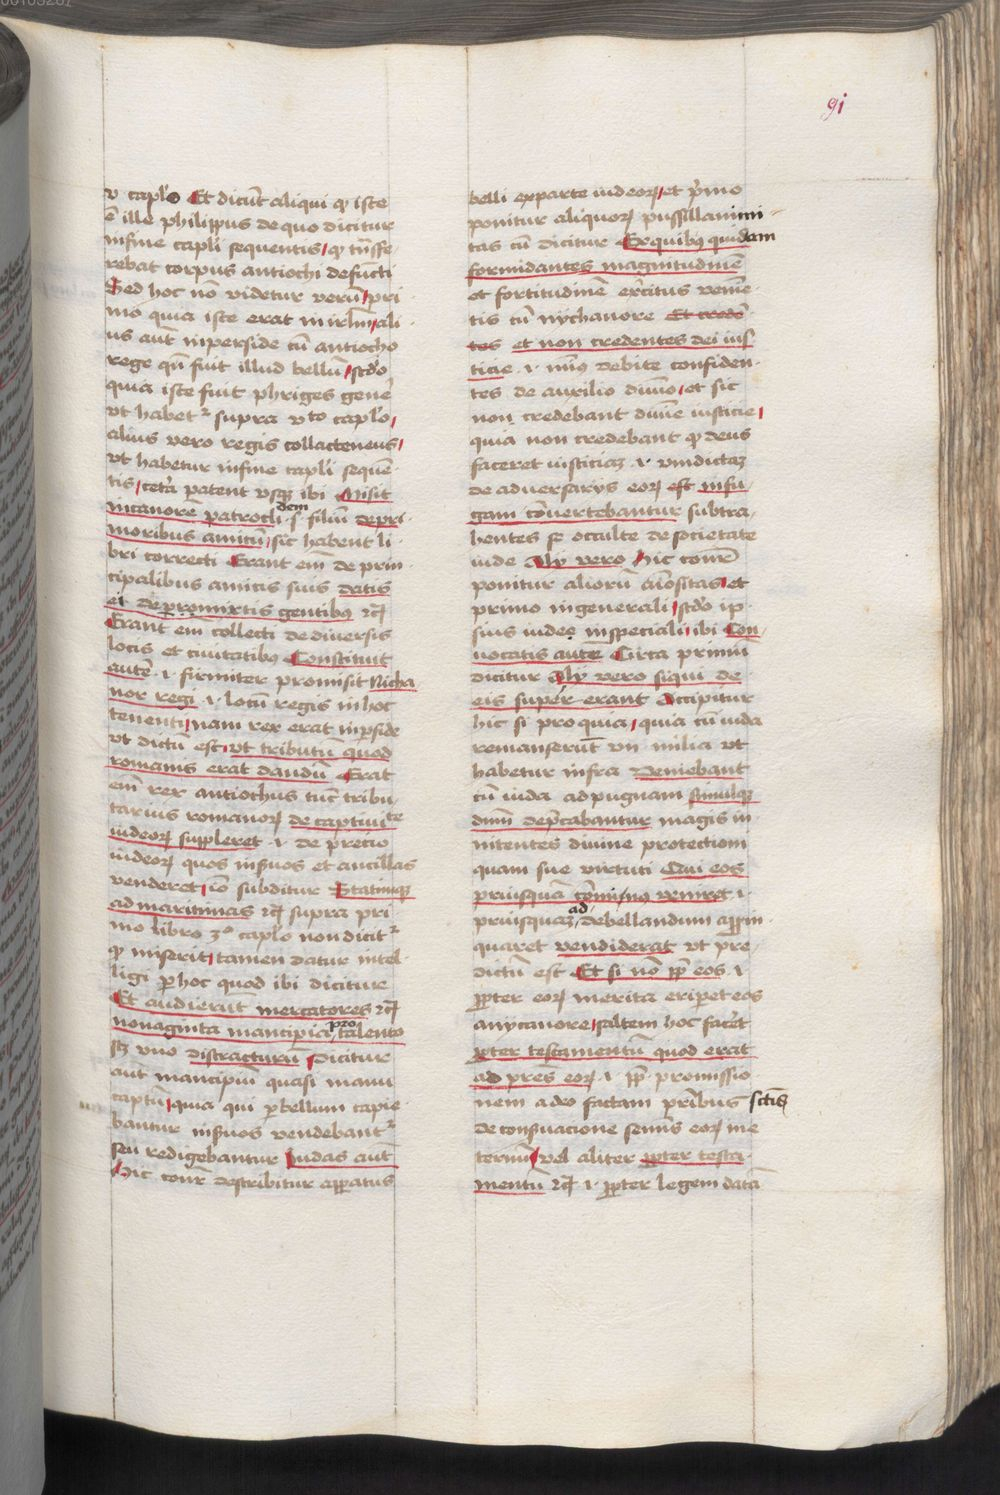 91
v caplo Et dicūt aliqui ꝙ iste
ē ille philippus de quo dicitur
in fine capli sequentis ꝙ trāsfe
rebat corpus antiochi defūcti
Sed hoc nō videtur verū pri
mo quia iste erat in irlm ali
us aūt in perside cū antiocho
rege qn̄ fuit illud bellū scdo
quia iste fuit phriges gene
vt habet supra vto caplo
alius vero regis collacteneus
vt habetur in fine capli sequē
tis cetā patent vsqꝫ ibi Misit
nicanorē patrocli dem s filiū de pri
moribus amicū sic habent li
bri correcti Erant eīm de prin
cipalibus amicis suis datis
ei de promixtis gentibꝫ ⁊c
Erant eīm collecti de diversis
locis et civitatibꝫ Constituit
autē .i. firmiter promisit Nicha
nor regi .i. locū regis in hoc
tenenti nam rex erat in pside
vt dictū est vt tributū quod
romanis erat dandū Erat
eīm rex antiochus tūc tribu
tarius romanoꝝ de captivitate
iudeoꝝ suppleret .i. de precio
iudeoꝝ quos in suos et ancillas
venderet iō subditur Statimqꝫ
ad maritimas ⁊c supra pri
mo libro 3º caplo non dicit
ꝙ miserit tamen datur intel
ligi p hoc quod ibi dicitur
Et audierūt mercatores ⁊c
nonaginta mancipia pro talento
scꝫ vno distracturū Dicitur
aūt mancipiū quasi manu
captū quia qui p bellum capie
bantur in suos vendebant
seu redigebantur Iudas aūt
Hic cōnr describitur apparatus
belli ex parte iudeoꝝ et p̄mo
ponitur aliquoꝝ pussillanimi
tas cū dicitur Ex quibꝫ quidam
formidantes magnitudinē
et fortitudinē exercitus venien
tis cū nychanore Et creden
tes et non credentes dei ius
ticie .i. minꝫ debite confiden
tes de auxilio divino et sic
non credebant divine iusticie
quia non credebant ꝙ deus
faceret iusticiaꝫ .i. vindictaꝫ
de adversarijs eoꝝ est in fu
gam cōvertebantur subtra
hentes se occulte de societate
iude Alij vero Hic cōnr
ponitur aliorū aīositas et
primo in generali scdo ip
sius iudeꝫ in speciali ibi Con
vocatis aute Circa primū
dicitur Alij vero siqui de
eis super erant Accipitur
hic si pro quia quia cū iuda
remanserūt vii milia vt
habetur infra Veniebant
cū iuda ad pugnam Simulqꝫ
dnm dep̄cabantur magis in
nitentes divine protectioni
quam sue virtuti Qui eos
priusquā cōminus veniret .i.
priusquaꝫ ad debellandum appin
quaret vendiderat vt pre
dictū est Et si nō pp̄ eos .i.
ppter eoꝝ merita eripet eos
a nycanore saltem hoc facet
ppter testamentū quod erat
ad pres eoꝝ .i. pp̄ promissio
nem a deo factam p̄ribus sctis
de conservacione seminis eoꝝ in e
ternū vel aliter ppter testa
mentū ⁊c .i. ppter legem datā